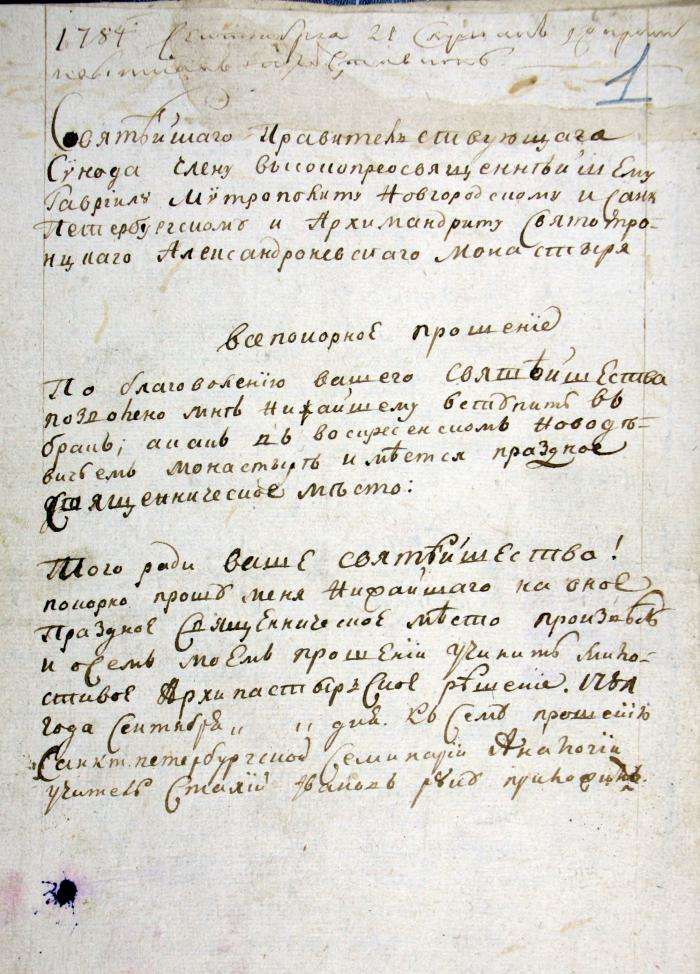 1784 Сентября 21
1
Святѣйшаго Правительствующаго
Сѵнода члену высокопреосвященнѣйшему
Гавріилу Митрополиту Новгородскому и Санк
Петербургскому и Архимандриту Святотро-
ицкаго Александроневскаго монастыря
всепокорное прошеніе
По благоволенію вашего святѣйшества
позволено мнѣ нижайшему вступить въ
бракъ; а какъ въ воскресенскомъ Новодѣ-
вичьемъ монастырѣ имѣется праздное
Священническое мѣсто:
Того ради Ваше святѣйшество!
покорно прошу меня нижайшаго на оное
Праздное Священническое мѣсто произвесть
и о семъ моемъ прошеніи учинить мило-
стивое Архипастырское рѣшеніе. 1784
года Сентября „ „ дня. Къ сему прошенію
Санктпетербургской Семинаріи Аналогіи
учитель Ивановъ руку приложилъ.